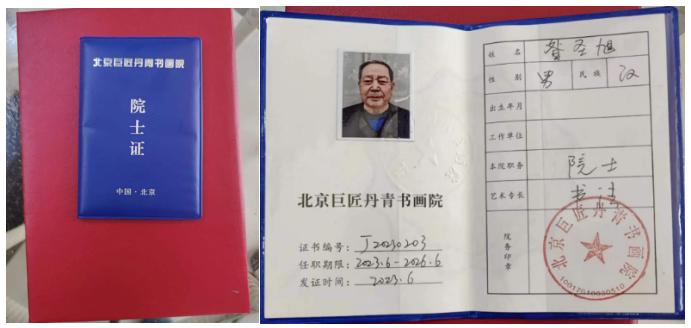 北京巨匠丹青书画院
院士证
中国·北京
北京巨匠丹青书画院
证书编号: J20230203
任职期限: 2023.6-2026.6
发证时间: 2023.6
姓名 圣旭
性别 男 民族 汉
出生年月
工作单位
本院职务 院士
艺术专长 书法
院务印章
北京巨匠丹青书画院